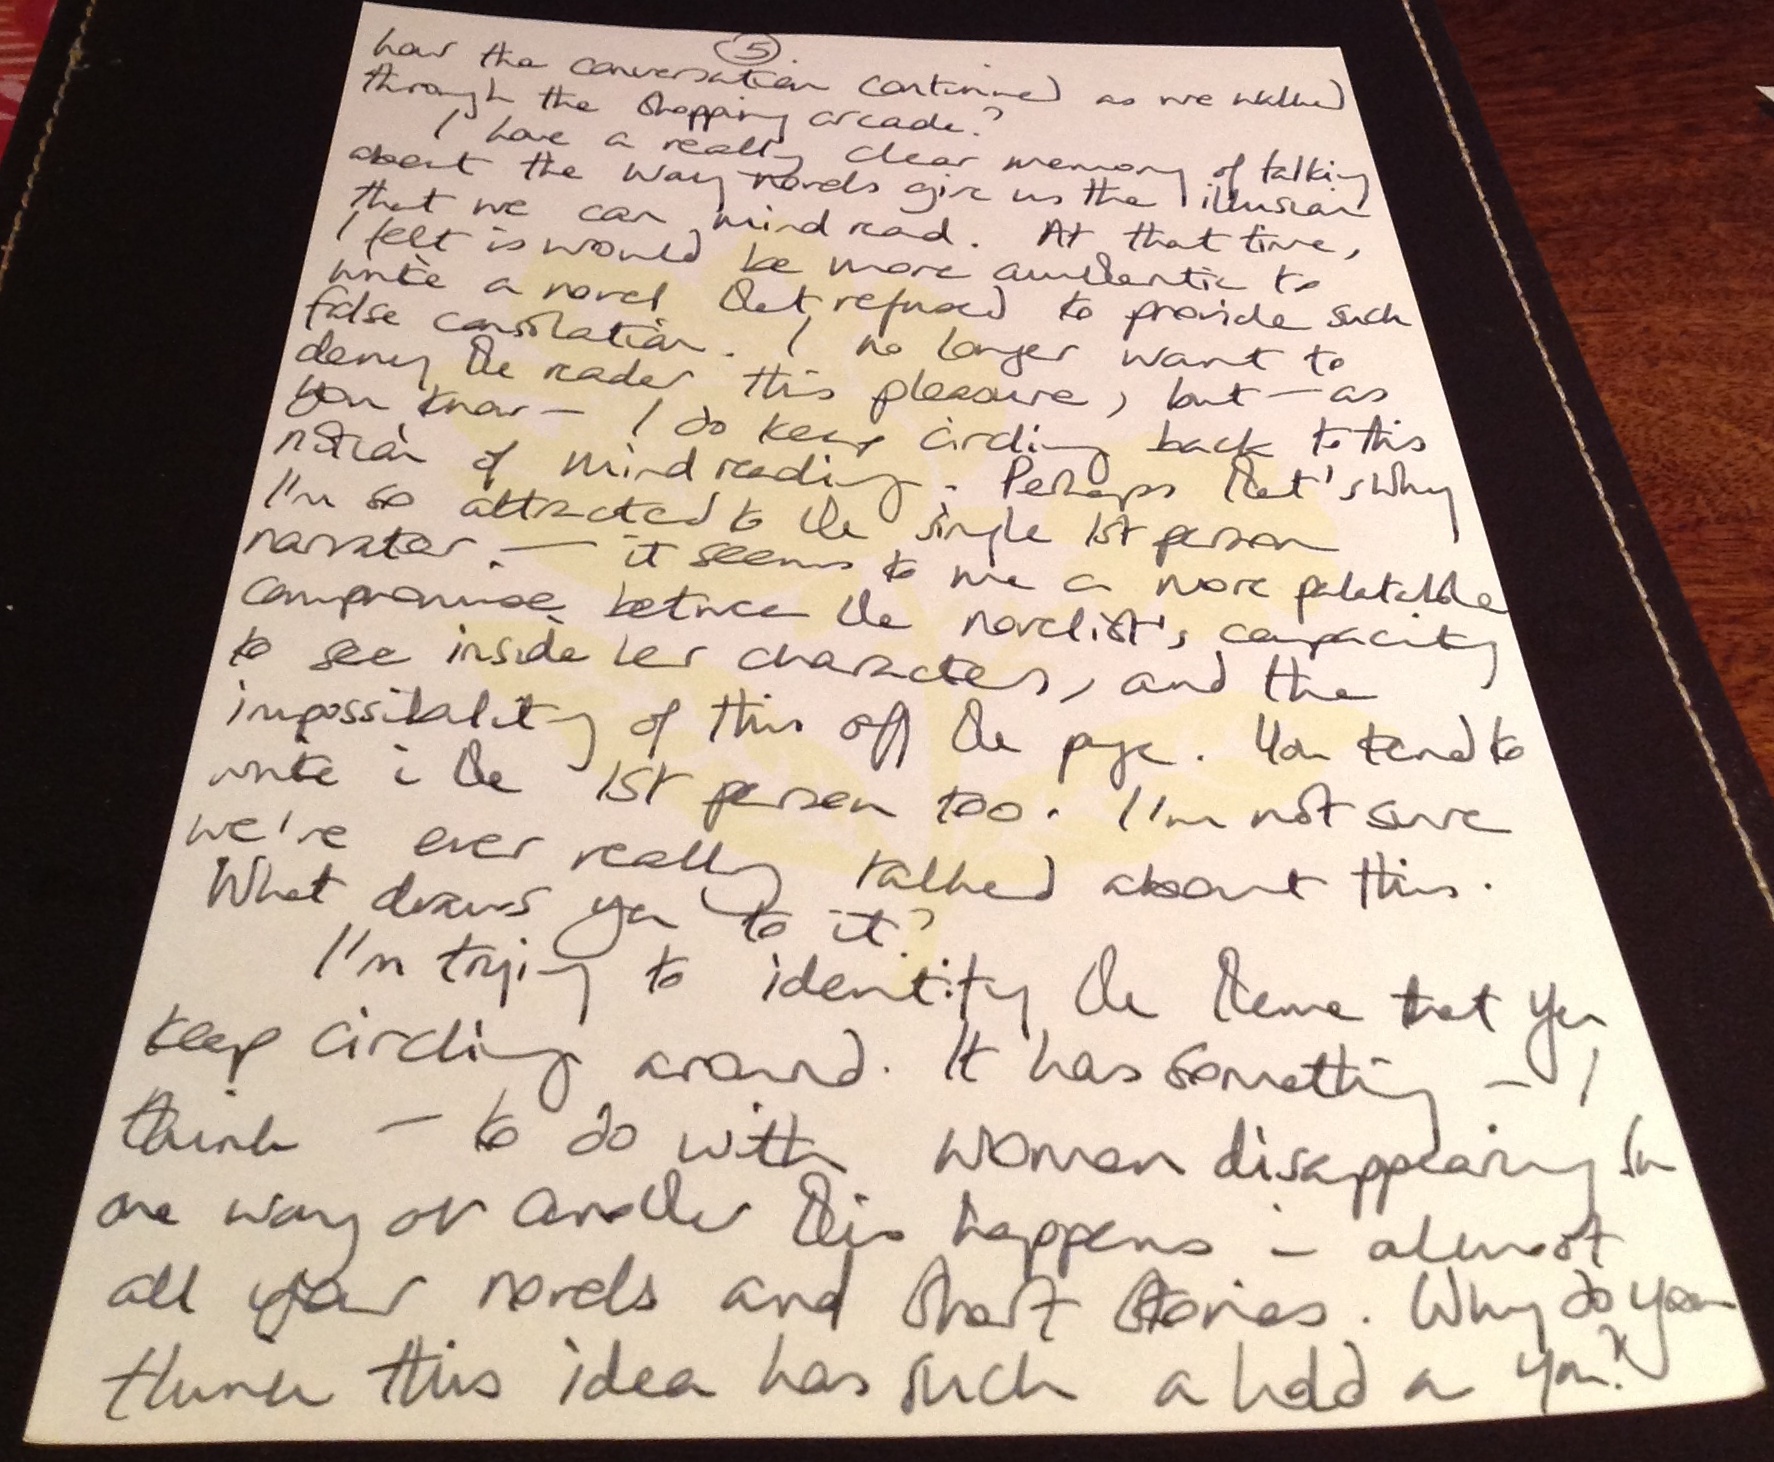 (5)
how the conversation continued as we walked
through the shopping arcade?
I have a really clear memory of talking
about the way novels give us the illusion
that we can mind read. At that time,
I felt is would be more authentic to
write a novel that refused to provide such
false consolation. I no longer want to
deny the reader this pleasure, but — as
you know — I do keep circling back to this
notion of mind reading. Perhaps that's why
I'm so attracted to the single 1st person
narrator. — it seems to me a more palatable
compromise between the novelist's capacity
to see inside her characters, and the
impossibility of this off the page. You tend to
write in the 1st person too. I'm not sure
we've ever really talked about this.
What draws you to it?
I'm trying to identify the theme that you
keep circling around. It has something – I
think – to do with women disappearing. In
one way or another this happens in almost
all your novels and short stories. Why do you
think this idea has such a hold on you?